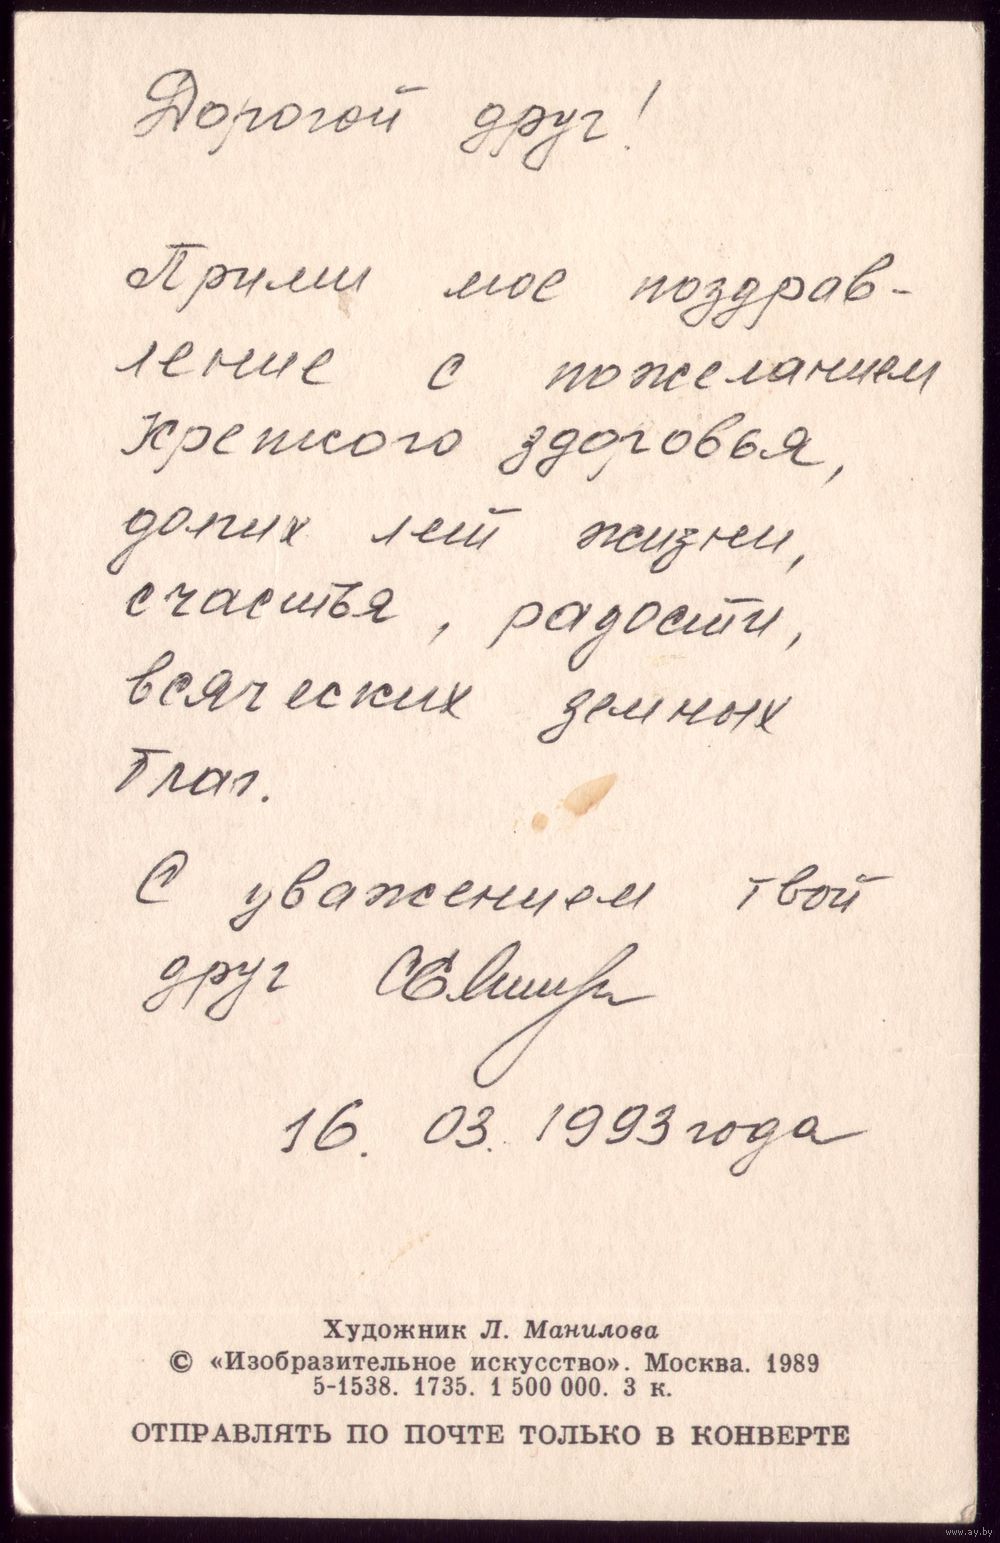 Дорогой друг!
Прими мое поздрав-
ление с пожеланием
крепкого здоровья,
долгих лет жизни,
счастья, радости,
всяческих земных
благ.
С уважением твой
друг
16. 03. 1993 года
Художник Л. Манилова
© «Изобразительное искусство». Москва. 1989
5-1538. 1735. 1 500 000. 3 к.
ОТПРАВЛЯТЬ ПО ПОЧТЕ ТОЛЬКО В КОНВЕРТЕ
www.ay.by